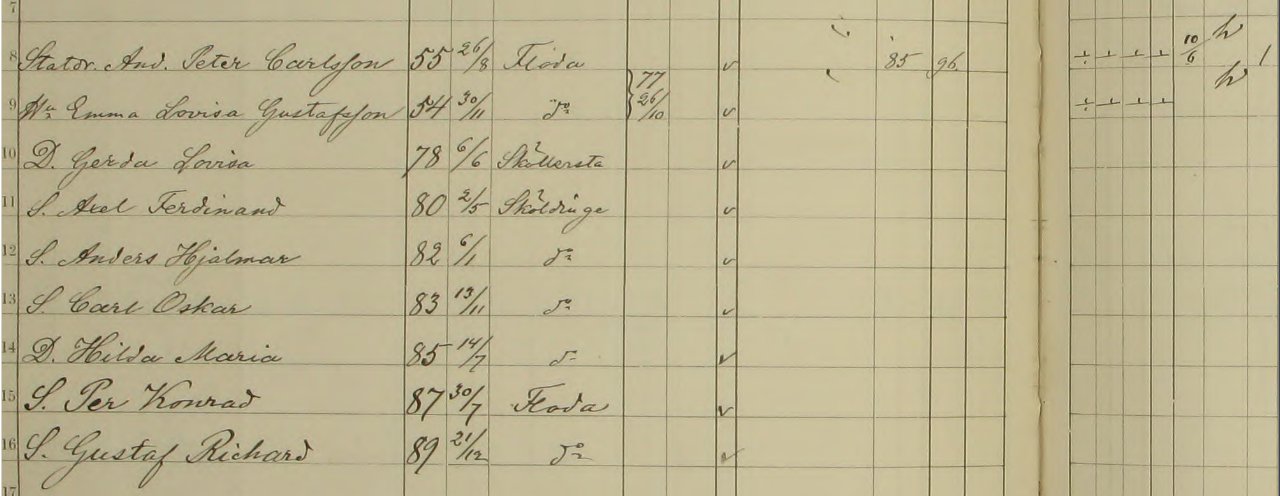 7
8 Statdr. And. Peter Carlsson 55 26/8 Floda 77 v 85 96. 10/6 h 1
9 Hu Emma Lovisa Gustafsson 54 30/11 do 26/10 v h
10 D. Gerda Lovisa 78 6/6 Sköllersta v
11 S. Axel Ferdinand 80 2/5 Sköldinge v
12 S. Anders Hjalmar 82 6/1 do v
13 S. Carl Oskar 83 13/11 do v
14 D. Hilda Maria 85 14/7 do v
15 S. Per Konrad 87 30/7 Floda v
16 S. Gustaf Richard 89 21/12 do v
17